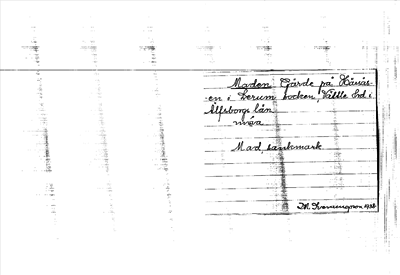 Maden, Gärde på Hänäs-
en i Lerum socken, Vättle hd i
Älfsborgs län
måa
Mad, sankmark.
1928